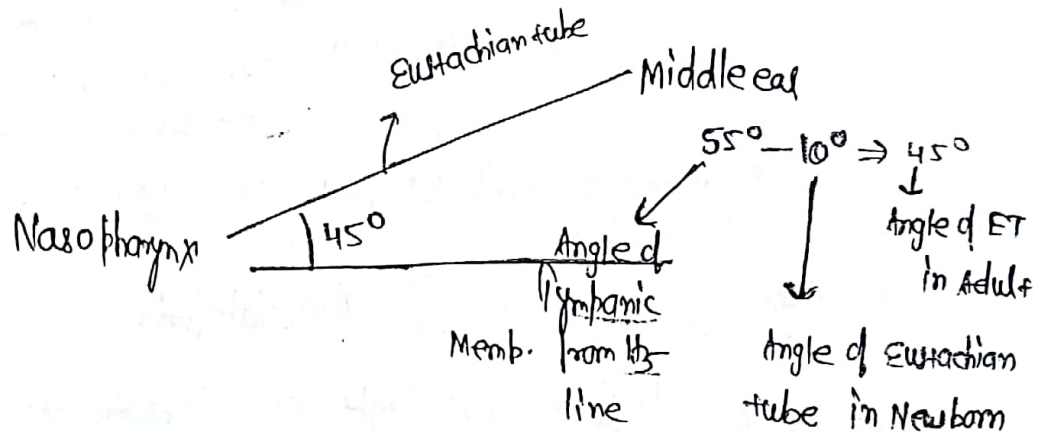 Eustachian tube
Middle ear
55° – 10° ⇒ 45°
Nasopharynx
45°
Angle of
Tympanic
Memb. from Hz
line
Angle of Eustachian
tube in Newborn
Angle of ET
in Adult